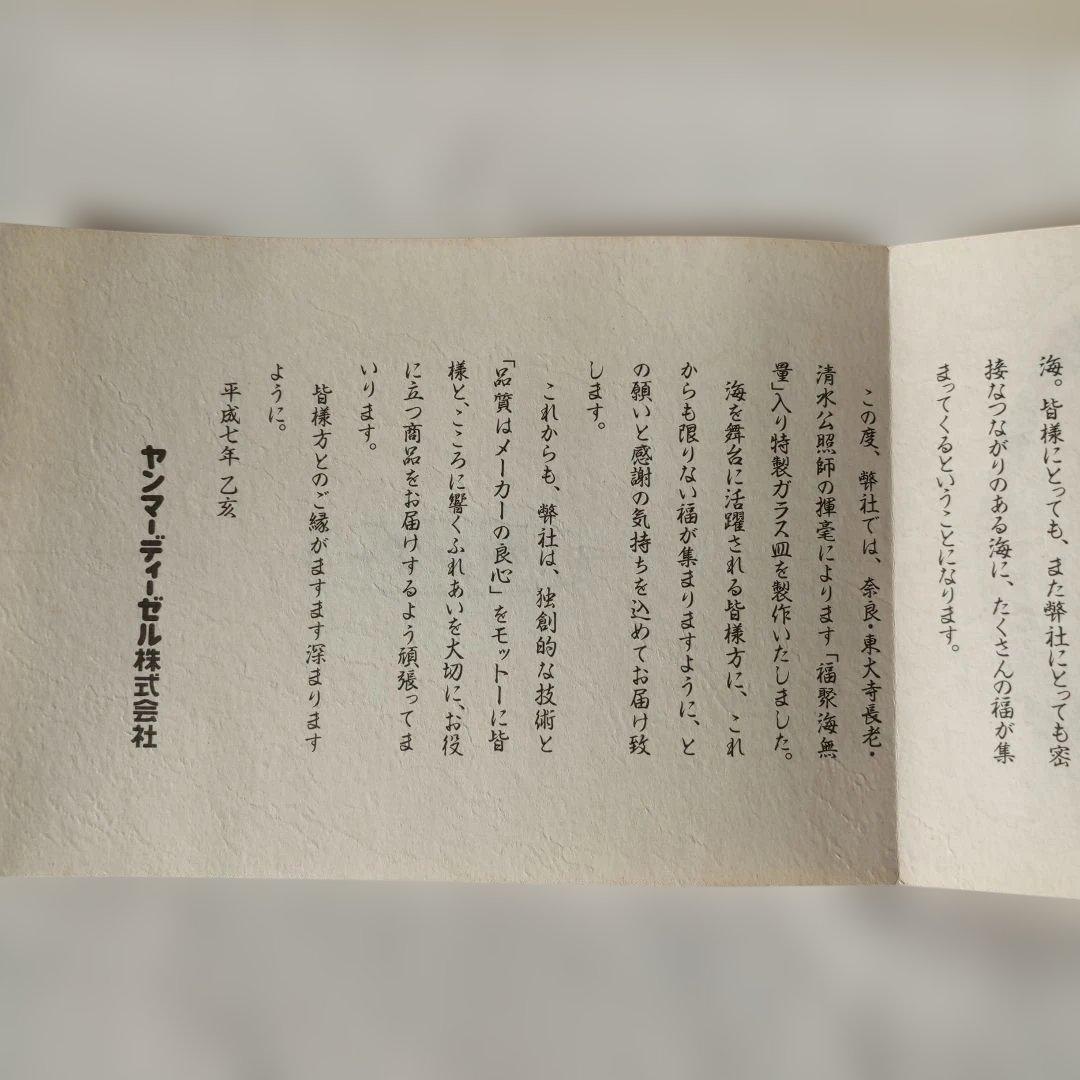 海。皆様にとっても、また弊社にとっても密
接なつながりのある海に、たくさんの福が集
まってくるということになります。
この度、弊社では、奈良・東大寺長老・
清水公照師の揮毫によります「福聚海無
量」入り特製ガラス皿を製作いたしました。
海を舞台に活躍される皆様方に、これ
からも限りない福が集まりますように、と
の願いと感謝の気持ちを込めてお届け致
します。
これからも、弊社は、独創的な技術と
「品質はメーカーの良心」をモットーに皆
様と、こころに響くふれあいを大切に、お役
に立つ商品をお届けするよう頑張ってま
いります。
皆様方とのご縁がますます深まります
ように。
平成七年 乙亥
ヤンマーディーゼル株式会社